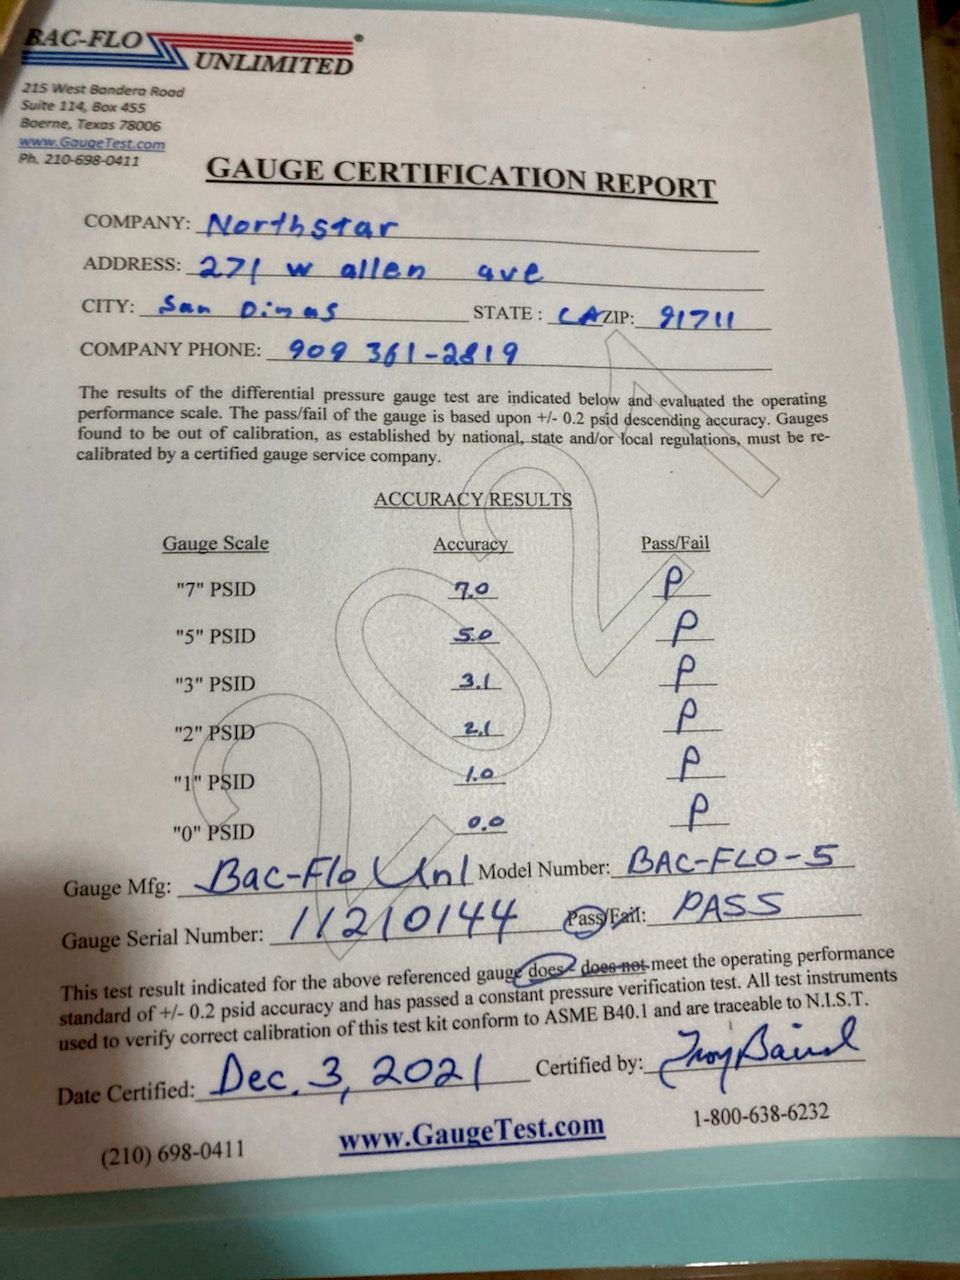 BAC-FLO
UNLIMITED
215 West Bandera Road
Suite 114, Box 455
Boerne, Texas 78006
www.GaugeTest.com
Ph. 210-698-0411
GAUGE CERTIFICATION REPORT
COMPANY: Northstar
ADDRESS: 271 w allen ave
CITY: San Dimas STATE : CA ZIP: 91711
COMPANY PHONE: 909 361-2819
The results of the differential pressure gauge test are indicated below and evaluated the operating
performance scale. The pass/fail of the gauge is based upon +/- 0.2 psid descending accuracy. Gauges
found to be out of calibration, as established by national, state and/or local regulations, must be re-
calibrated by a certified gauge service company.
ACCURACY RESULTS
Gauge Scale Accuracy Pass/Fail
"7" PSID 7.0 P
"5" PSID 5.0 P
"3" PSID 3.1 P
"2" PSID 2.1 P
"1" PSID 1.0 P
"0" PSID 0.0 P
2021
Gauge Mfg: Bac-Flo Unl Model Number: BAC-FLO-5
Gauge Serial Number: 11210144 Pass/Fail: PASS
This test result indicated for the above referenced gauge does - does not meet the operating performance
standard of +/- 0.2 psid accuracy and has passed a constant pressure verification test. All test instruments
used to verify correct calibration of this test kit conform to ASME B40.1 and are traceable to N.I.S.T.
Date Certified: Dec. 3, 2021 Certified by: Troy Baird
(210) 698-0411 www.GaugeTest.com 1-800-638-6232